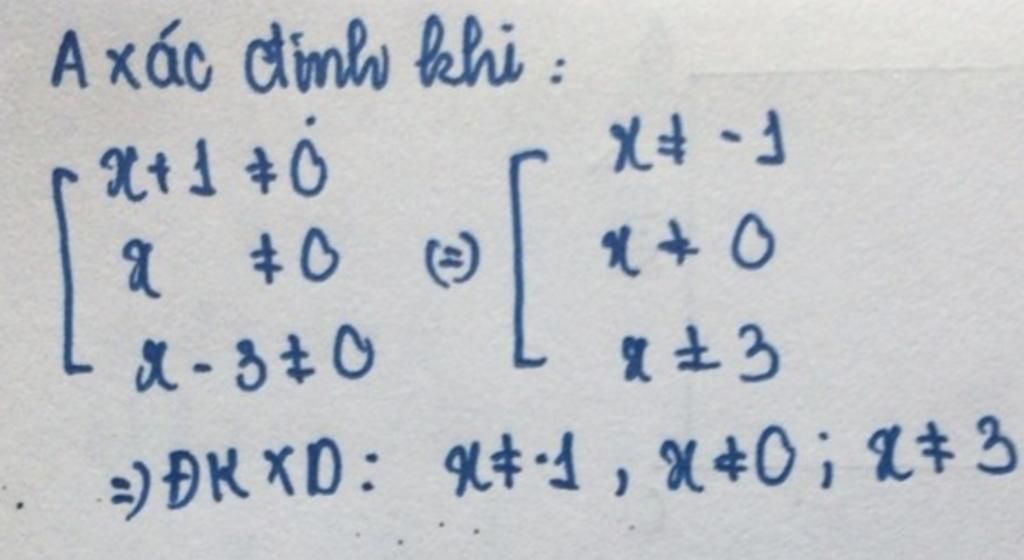 A xác định khi :
x+1 ≠ 0 x ≠ -1
x ≠ 0 (=) x ≠ 0
x - 3 ≠ 0 x ≠ 3
=) ĐKXD : x ≠ -1 , x ≠ 0 ; x ≠ 3